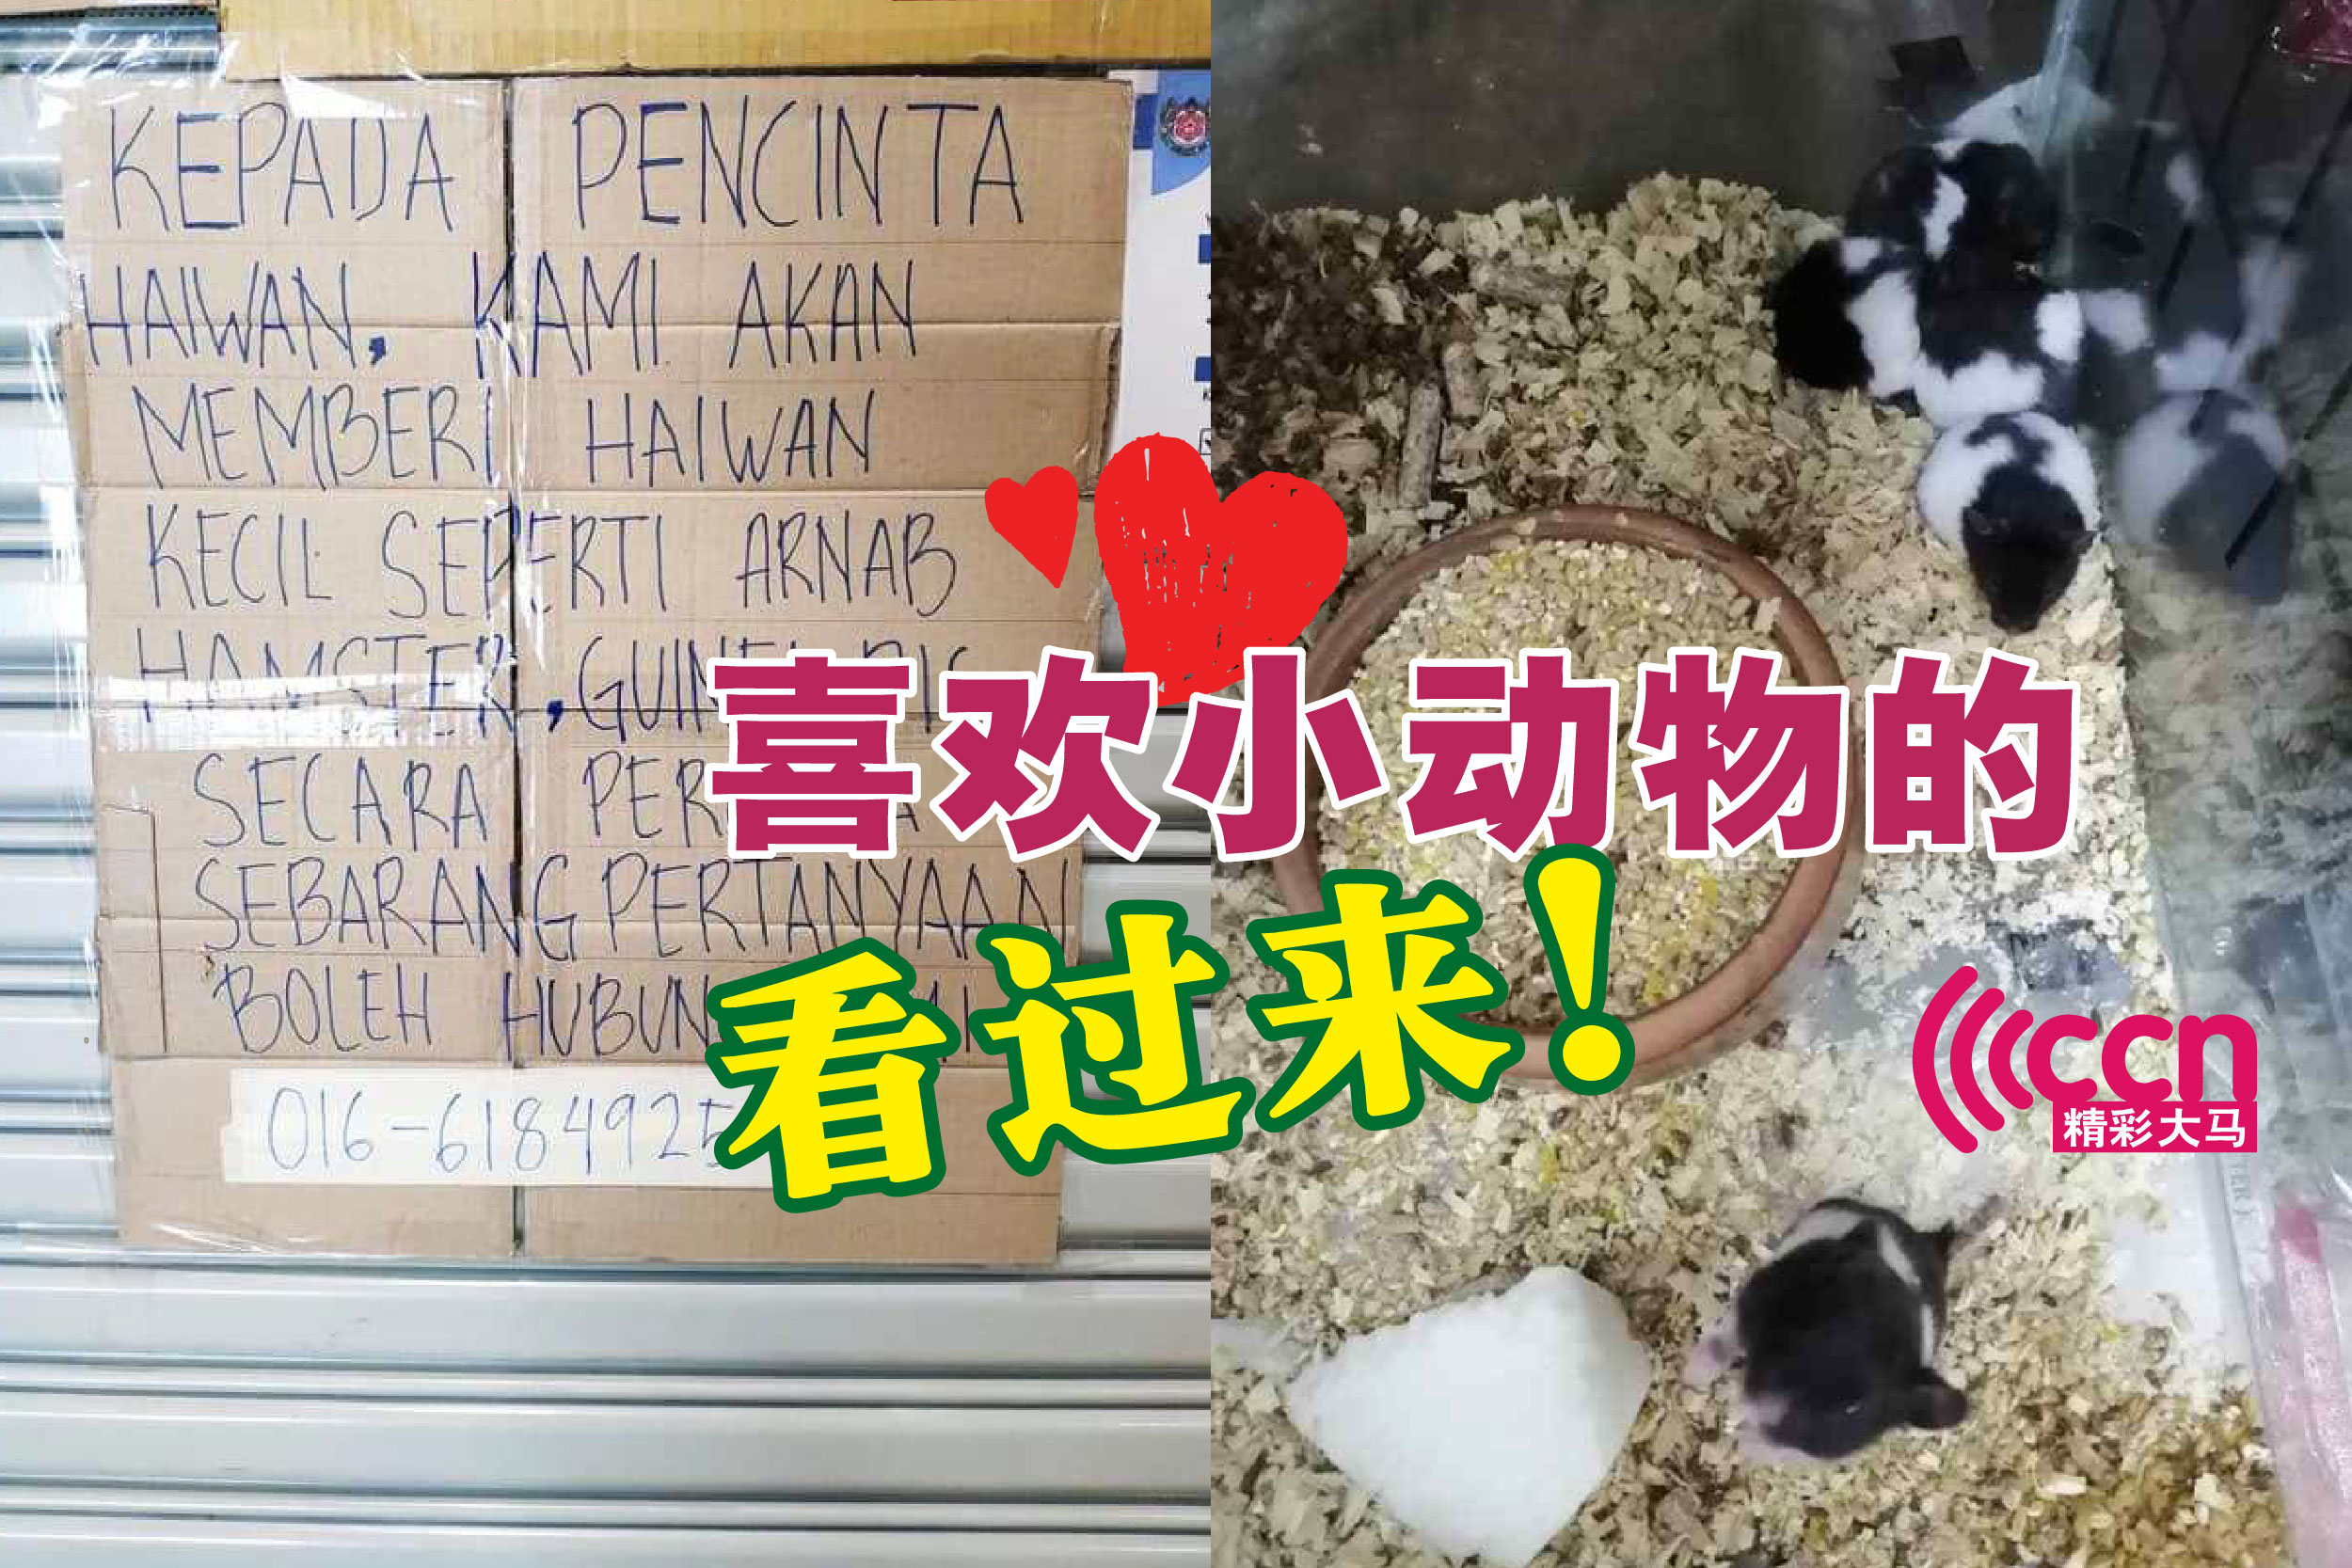 KEPADA PENCINTA
HAIWAN, KAMI AKAN
MEMBERI HAIWAN
KECIL SEPERTI ARNAB
HAMSTER, GUINEA PIG
SECARA
SEBARANG PERTANYAAN
BOLEH
016-6184925
喜欢小动物的
看过来！
ccn
精彩大马